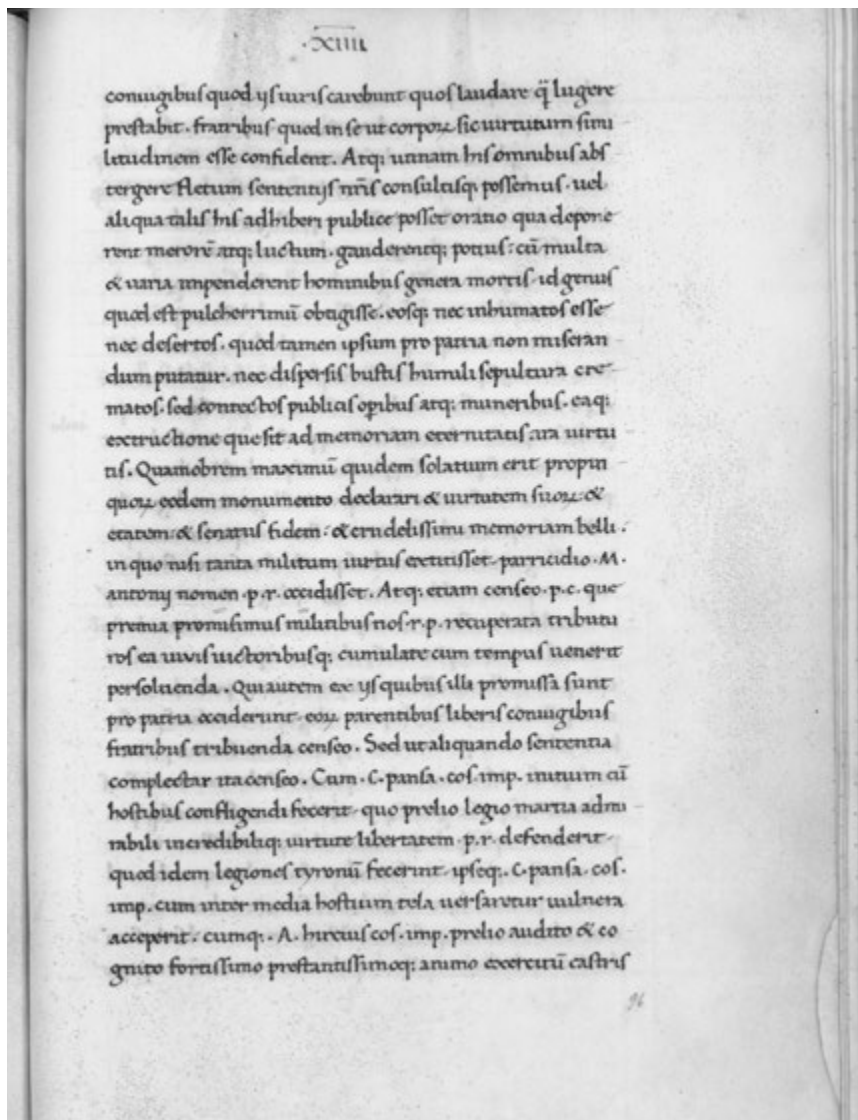 ·XIIII
coniugibus quod ijs uiris carebunt quos laudare q̄ lugere
prestabit. fratribus quod in se ut corporꝝ sic uirtutum simi
litudinem esse confident. Atq; utinam his omnibus abs
tergere fletum sententijs nr̄is consultisq; possemus. uel
aliqua talis his adhiberi publice posset oratio qua depone
rent merorē atq; luctum. gauderentq; potius: cū multa
& uaria impenderent hominibus genera mortis. id genus
quod est pulcherrimū obtigisse. eosq; nec inhumatos esse
nec desertos. quod tamen ipsum pro patria non miseran
dum putatur. nec dispersis bustis humili sepultura cre
matos. sed contectos publicis oꝑibus atq; muneribus. eaq;
extructione que sit ad memoriam eternitatis ara uirtu
tis. Quamobrem maximū quidem solatium erit propin
quoꝝ eodem monumento declarari & uirtutem suoꝝ: &
etatem: & senatus fidem: & crudelissimi memoriam belli.
in quo nisi tanta militum uirtus extitisset. parricidio. M.
antonij nomen. p. r. occidisset. Atq; etiam censeo. p. c. que
premia promisimus militibus nos. r. p. recuperata tributu
ros ea uiuis uictoribusq; cumulate cum tempus uenerit
persoluenda. Qui autem ex ijs quibus illa promissa sunt
pro patria occiderunt. eoꝝ parentibus liberis coniugibus
fratribus tribuenda censeo. Sed ut aliquando sententia
complectar ita censeo. Cum. C. pansa. cos. imp. initium cū
hostibus confligendi fecerit. quo prelio legio martia admi
rabili incredibiliq; uirtute libertatem. p. r. defenderit.
quod idem legiones tyronū fecerint. ipseq;. C. pansa. cos.
imp. cum inter media hostium tela uersaretur uulnera
acceperit. cumq;. A. hircius cos. imp. prelio audito & co
gnito fortissimo prestantissimoq; animo exercitū castris
96